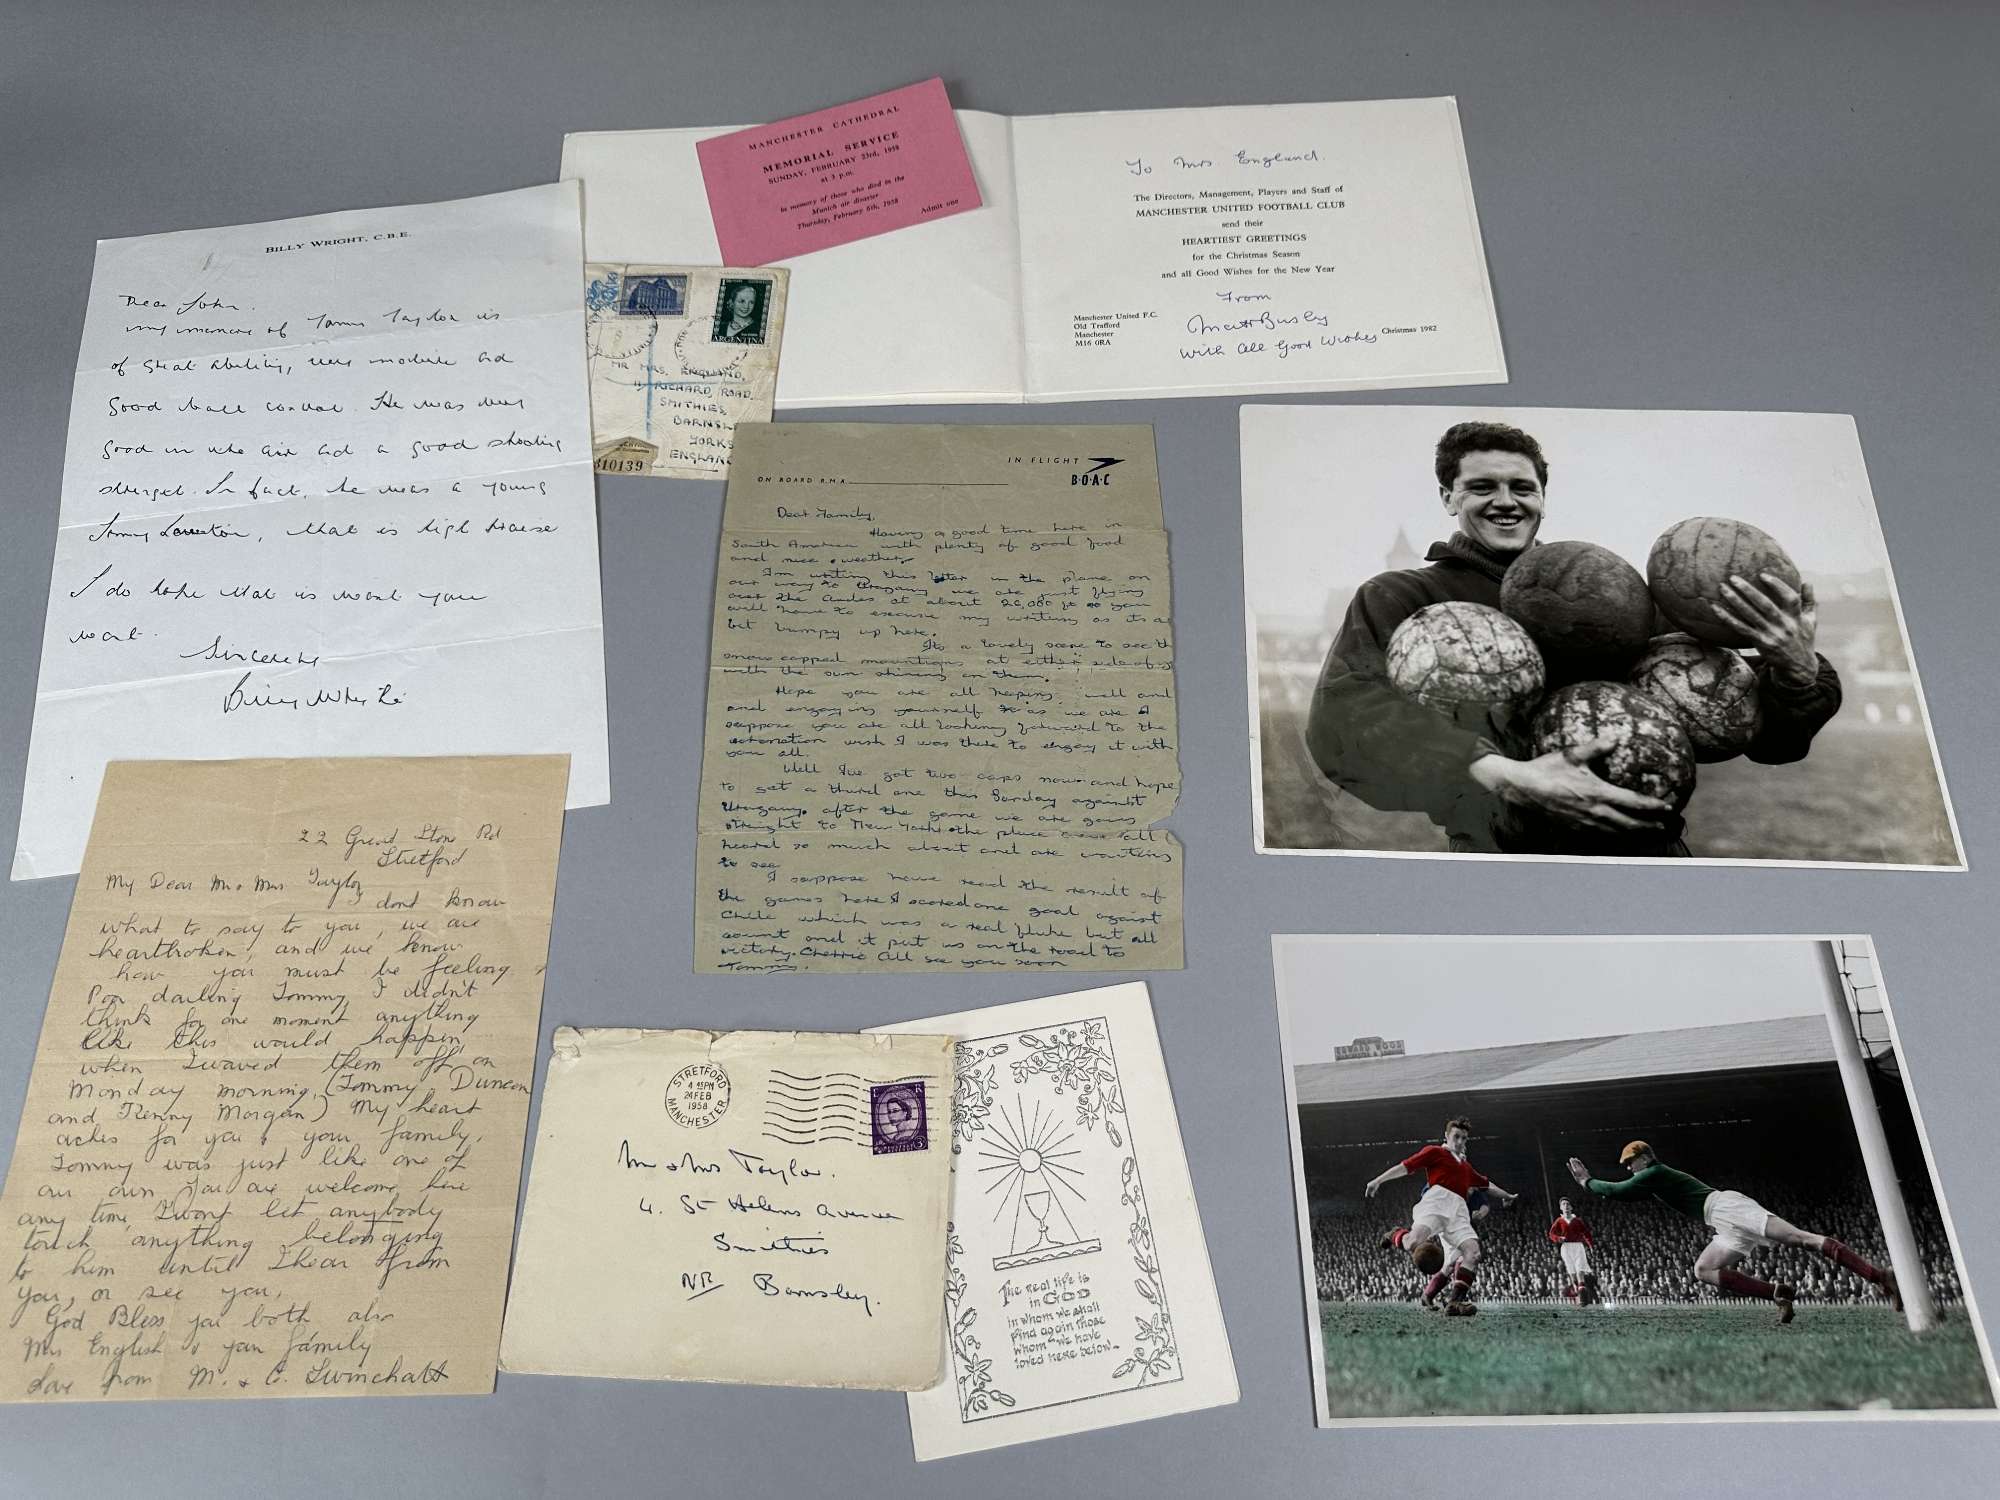 MANCHESTER CATHEDRAL
MEMORIAL SERVICE
SUNDAY, FEBRUARY 23rd, 1958
at 3 p.m.
In memory of those who died in the
Munich air disaster
Thursday, February 6th, 1958
Admit one
To Mrs England.
The Directors, Management, Players and Staff of
MANCHESTER UNITED FOOTBALL CLUB
send their
HEARTIEST GREETINGS
for the Christmas Season
and all Good Wishes for the New Year
From
Matt Busby
With all Good Wishes
Manchester United F.C.
Old Trafford
Manchester
M16 0RA
Christmas 1982
BILLY WRIGHT, C.B.E.
Dear John.
my memory of Tommy Taylor is
of great ability, very mobile and
good ball control. He was very
good in the air and a good shooting
strength. In fact, he was a young
Tommy Lawton, that is high praise
I do hope that is what you
want.
Sincerely
Billy Wright
REPUBLICA ARGENTINA
ARGENTINA
MR MRS. ENGLAND,
11 RICHARD, ROAD,
SMITHIES,
BARNSL
YORKS
ENGLAND
310139
IN FLIGHT
B·O·A·C
ON BOARD R.M.A.
Dear Family,
Having a good time here in
South America with plenty of good food
and nice weather.
I'm writing this letter in the plane on
our way to Uraguay we are just flying
over the Andes at about 20,000 ft so you
will have to excuse my writing as its a
bet bumpy up here.
Its a lovely scene to see th
snow capped mountians at either side of us
with the sun shining on them.
Hope you are all keeping well and
and enjoying yourself as we are I
suppose you are all looking forward to the
coronation wish I was there to enjoy it with
you all.
Well I've got two caps now and hope
to get a third one this Sunday against
Uraguay. after the game we are going
straight to New York the place all
heard so much about and are waiting
to see.
I suppose have read the result of
the games here I scored one goal against
Chile which was a real fluke but all
count and it put us on the road to
victory. Cherrio All see you soon
Tommy.
22 Great Ston Rd
Stretford
My Dear Mr & Mrs Taylor
I dont know
what to say to you, we are
heartbroken, and we know
how you must be feeling.
Poor darling Tommy, I didn't
think for one moment anything
like this would happen,
when I waved them off on
Monday morning, (Tommy, Duncan
and Kenny Morgan) My heart
aches for you & your family,
Tommy was just like one of
our own You are welcome here
any time, I wont let anybody
touch anything belonging
to him until I hear from
you, or see you,
God Bless you both also
Mrs English & your family
Love from M. & C. Swinchatt
STRETFORD
4 15PM
24 FEB
1958
MANCHESTER
E R
3
Mr & Mrs Taylor.
4. St Helens Avenue
Smithies
NR Barnsley.
The real life is
in GOD
in whom we shall
find again those
whom we have
loved here below.